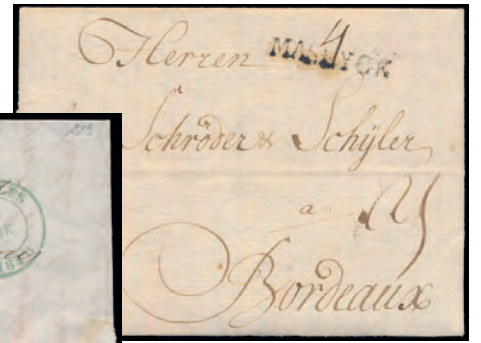 Herren
MASEYCK
4
Schröder & Schÿler
a
Bordeaux